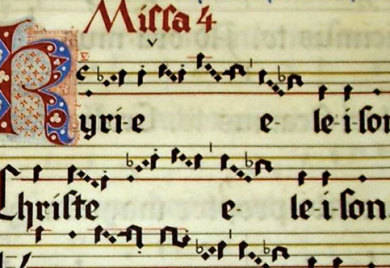 Missa 4
Kyri-e e-le-ison
Christe e-le-ison.